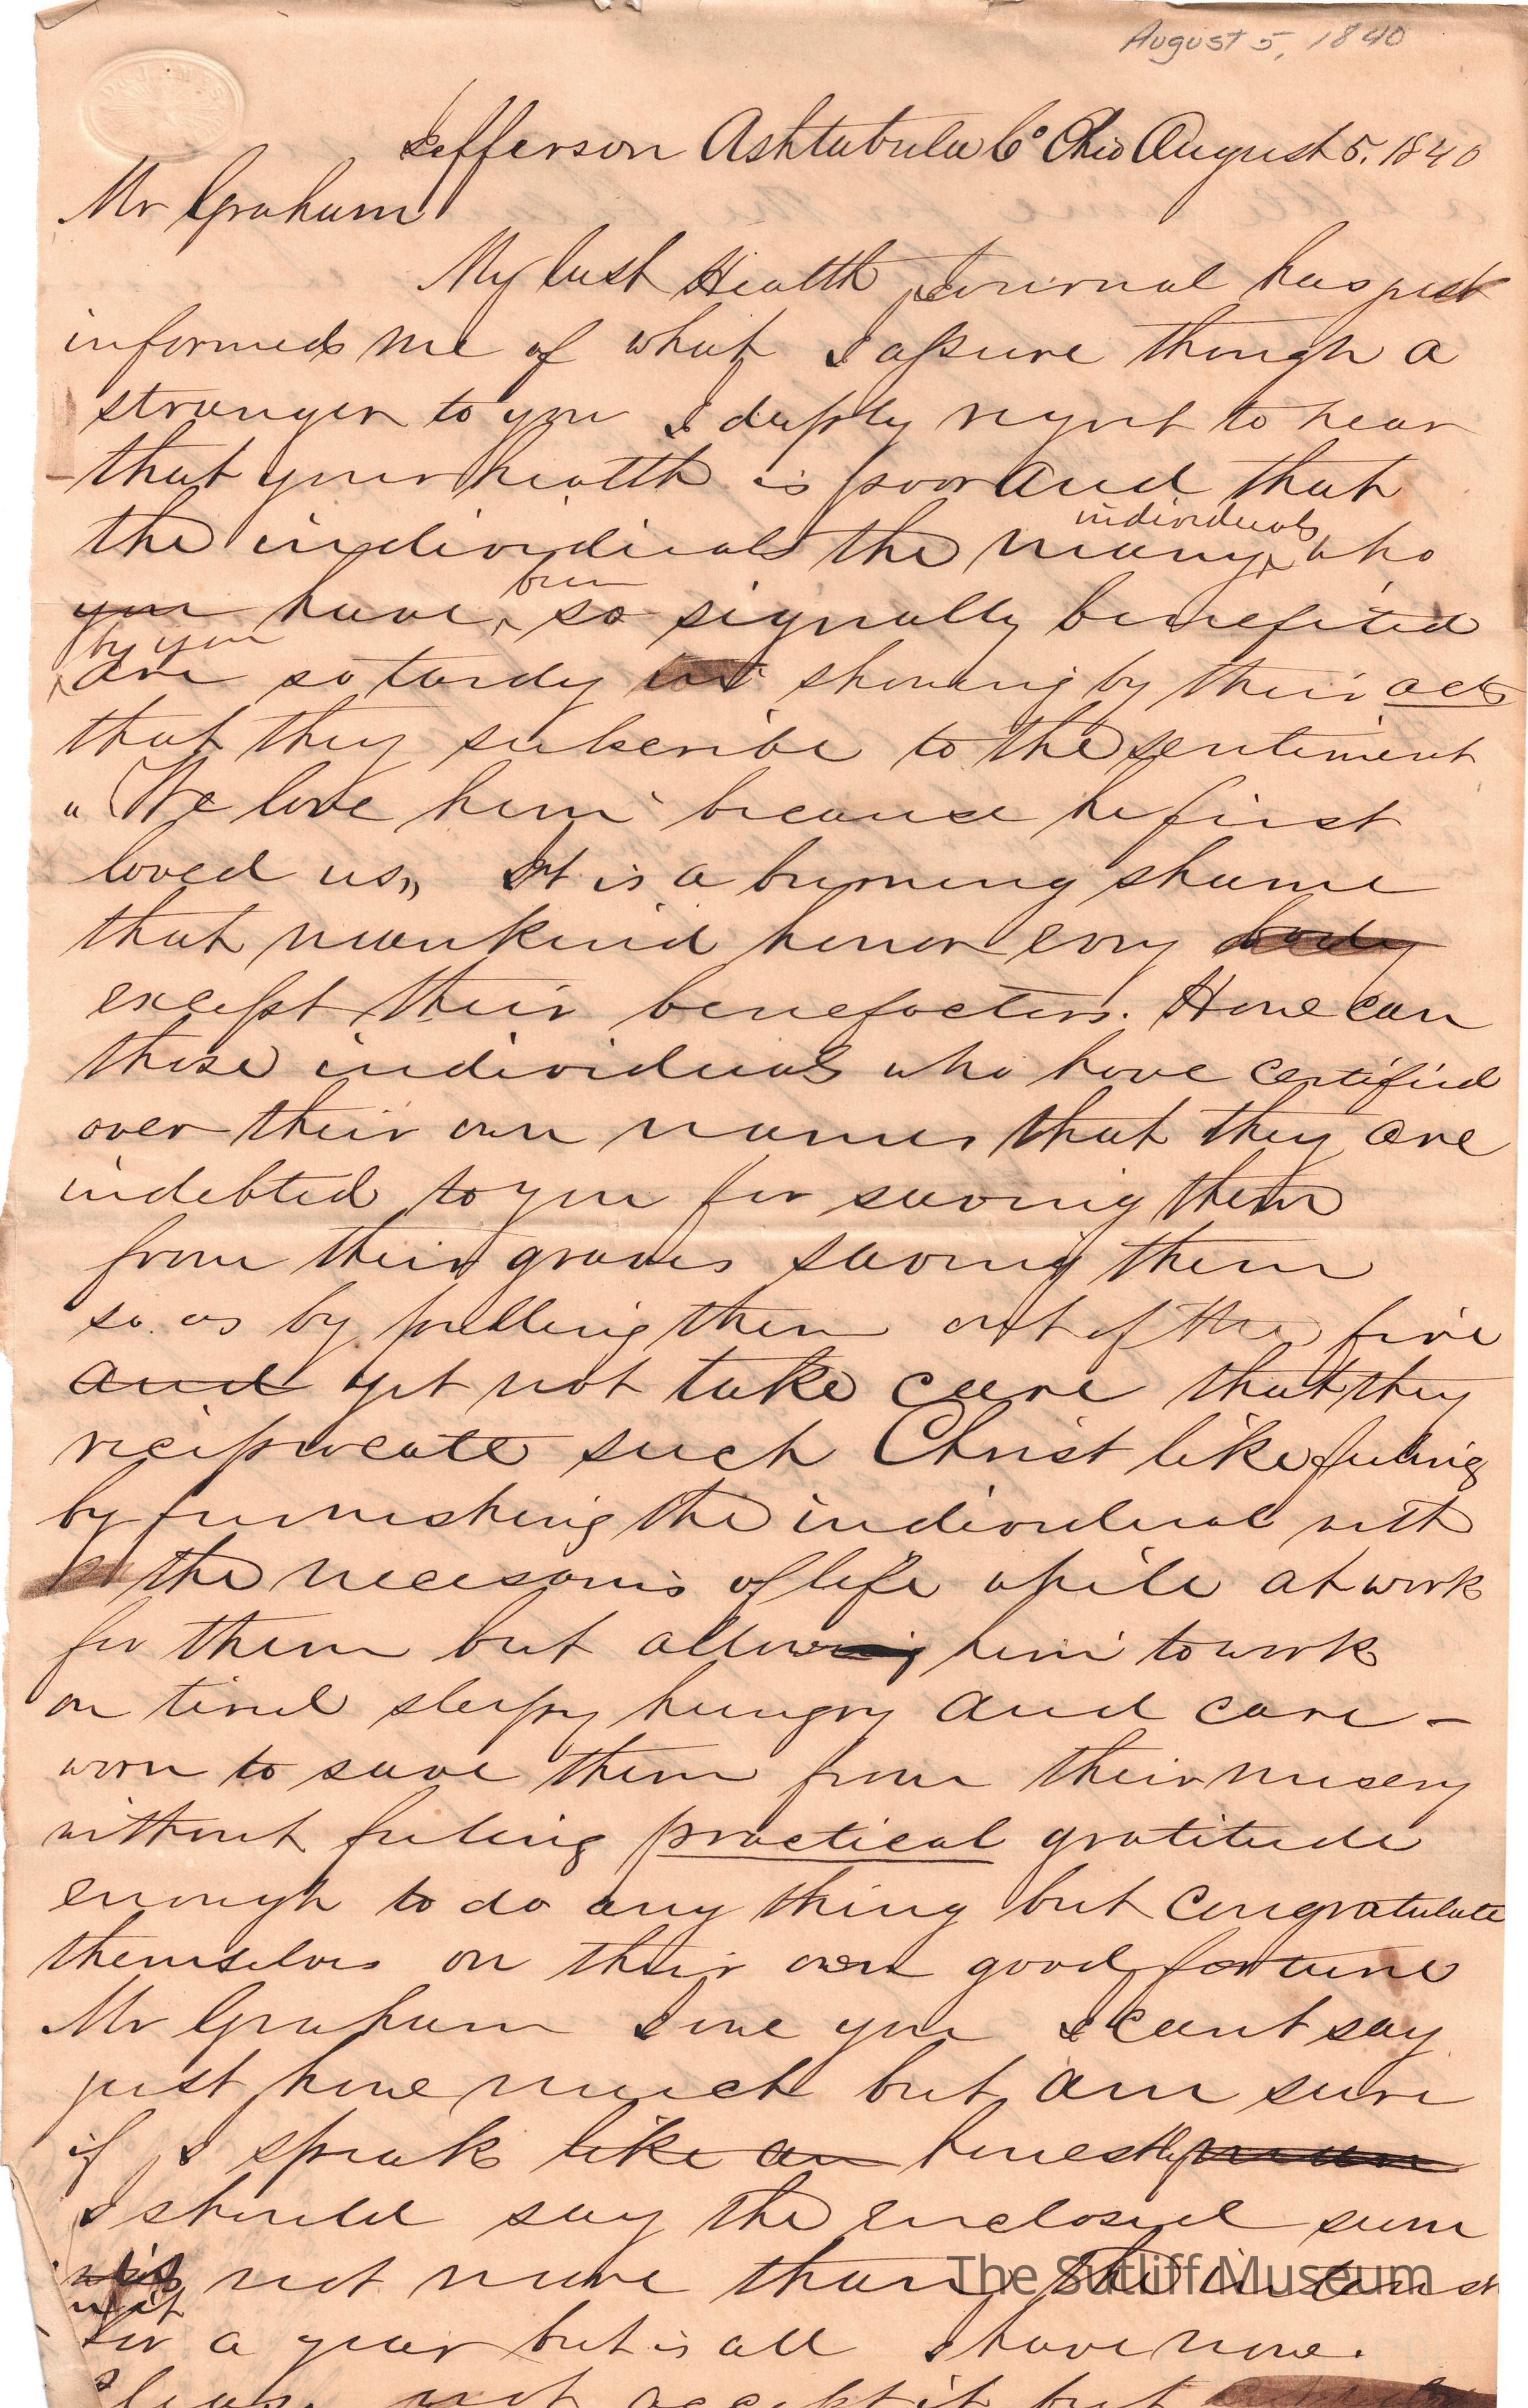 August 5, 1840
Jefferson Ashtabula Co Ohio August 5. 1840
Mr Graham
My last Health Journal has just
informed me of what I assure though a
stranger to you I deeply regret to hear
that your health is poor and that
the individuals the many individuals who
you have been so signally benefited
by you
are so tardy in showing by their acts
that they subscribe to the sentiment
"We love him because he first
loved us" It is a burning shame
that mankind honor evry body
except their benefactors. How can
those individuals who have certified
over their own names that they are
indebted to you for saving them
from their graves saving them
so as by pulling them out of the fire
and yet not take care that they
reciprocate such Christ like feeling
by furnishing the individual with
the necesaris of life while at work
for them but allowing him to work
on tired sleepy hungry and care-
worn to save them from their misery
without feeling practical gratitude
enough to do any thing but congratulate
themselves on their own good fortune
Mr Graham I owe you I cant say
just how much but am sure
if I speak like an honestly man
I should say the enclosed sum
not more than the interest
for a year but is all I have now.
Pleas. not accept it but
The Sutliff Museum